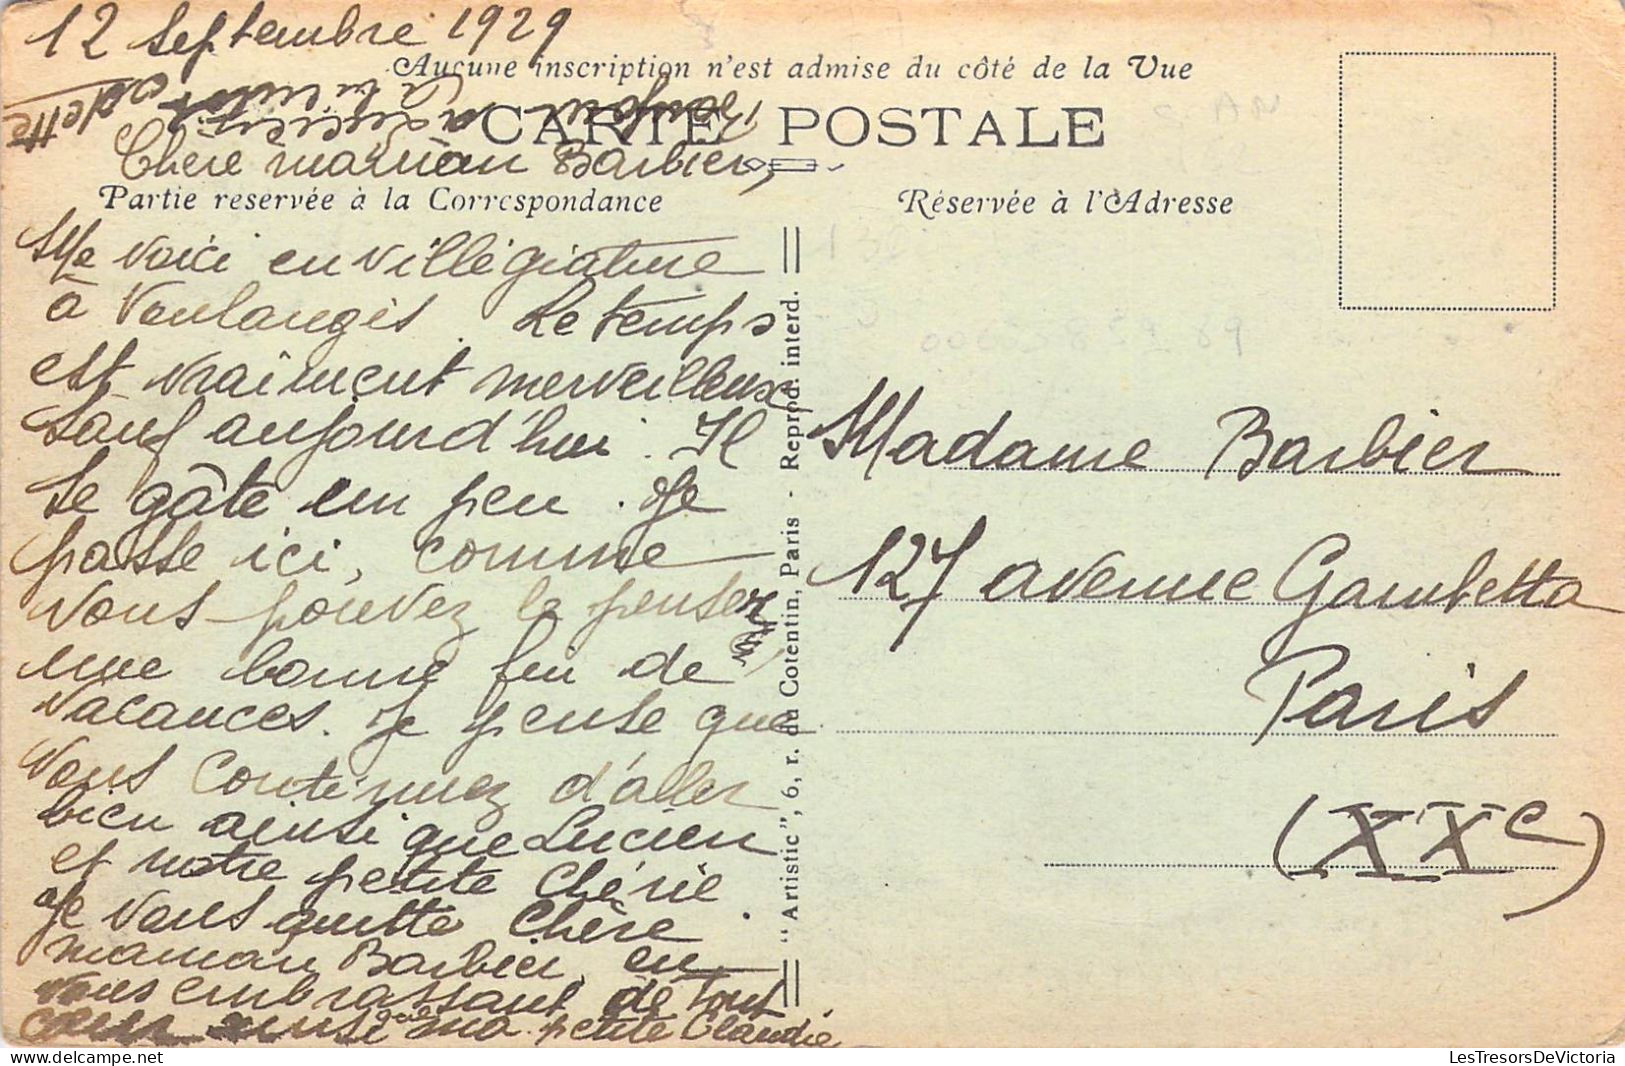 12 Septembre 1929
Aucune inscription n'est admise du côté de la Vue
CARTE POSTALE
Bonjour à Lucien
Odette
Chère maman Barbier,
Partie reservée à la Correspondance
Réservée à l'Adresse
Me voici en villégiature
à Voulangis. Le temps
est vraiment merveilleux
sauf aujourd'hui. Il
se gâte un peu. Je
passe ici, comme
vous pouvez le penser
une bonne fin de
vacances. Je pense que
vous continuez d'aller
bien ainsi que Lucien
et notre petite Chérie
Je vous quitte Chère
maman Barbier, en
vous embrassant de tout
cœur ainsi que ma petite Claudie
"Artistic", 6, r. du Cotentin, Paris - Reprod. interd.
Madame Barbier
127 avenue Gambetta
Paris
(XXe)
LesTresorsDeVictoria